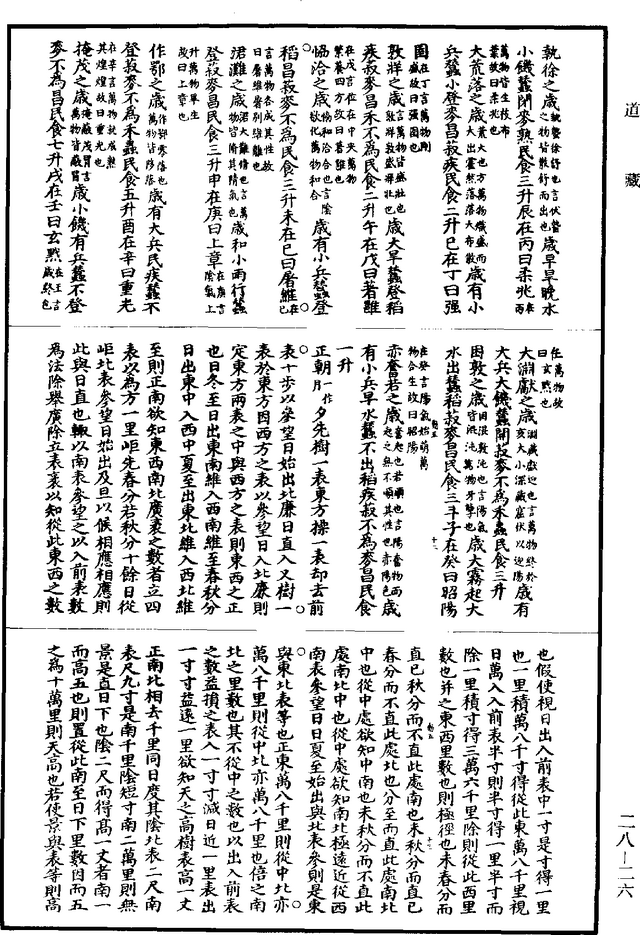 道藏
執徐之歲執蟄徐舒也言伏蟄之物皆散舒而出也歲早旱晚水
小饑蠶閉麥熟民食三升辰在丙曰柔兆在丙
萬物皆生枝布葉故曰柔兆也
大荒落之歲荒大也方萬物熾盛而大出霍然落落大布散歲有小
兵蠶小登麥昌菽疾民食二升巳在丁曰强
圉在丁言萬物剛盛故曰强圉也
敦牂之歲言萬物皆盛壯也敦敦盛牂壯也歲大旱蠶登稻
疾菽麥昌禾不為民食二升午在戊曰著雝
在戊言位在中央萬物繁養四方故曰著雝也
協洽之歲協和洽合也言陰欲化萬物和合歲有小兵蠶登
稻昌菽麥不為民食三升未在己曰屠維在己
言萬物各成其性故曰屠維屠別維離也
涒灘之歲涒大灘脩也言萬物皆脩其精氣也歲和小雨行蠶
登菽麥昌民食三升申在庚曰上章在庚言陰氣上
升萬物畢生故曰上章也
作鄂之歲作鄂零落也萬物皆陊落歲有大兵民疾蠶不
登菽麥不為禾蟲民食五升酉在辛曰重光
在辛言萬物就成熟其煌煌故曰重光也
掩茂之歲掩蔽茂冒也言萬物皆蔽冒歲小饑有兵蠶不登
麥不為昌民食七升戌在壬曰玄黓在壬言歲終包
任萬物故曰玄黓也
大淵獻之歲淵藏獻迎也言萬物終於亥大小深藏窟伏以迎陽歲有
大兵大饑蠶開菽麥不為禾蟲民食三升
困敦之歲困混敦沌也言陽氣皆混沌萬物牙孽也歲大霧起大
水出蠶稻菽麥昌民食三斗子在癸曰昭陽
在癸言陽氣始萌萬物合生故曰昭陽
赤奮若之歲奮起也若順也言陽奮物而起之無不順其性也赤陽色歲
有小兵早水蠶不出稻疾菽不為麥昌民食
一升
正朝一作月夕先樹一表東方操一表却去前
表十步以參望日始出北廉日直入又樹一
表於東方因西方之表以參望日入北廉則
定東方兩表之中與西方之表則東西之正
也日冬至日出東南維入西南維至春秋分
日出東中入西中夏至出東北維入西北維
至則正南欲知東西南北廣袤之數者立四
表以為方一里岠先春分若秋分十餘日從
岠北表參望日始出及旦以候相應相應則
此與日直也輒以南表參望之以入前表數
為法除舉廣除立表袤以知從此東西之數
也假使視日出入前表中一寸是寸得一里
也一里積萬八千寸得從此東萬八千里視
日萬入入前表半寸則半寸得一里半寸而
除一里積寸得三萬六千里除則從此西里
數也并之東西里數也則極徑也未春分而
直已秋分而不直此處南也未秋分而直已
春分而不直此處北也分至而直此處南北
中也從中處欲知中南也未秋分而不直此
處南北中也從中處欲知南北極遠近從西
南表參望日日夏至始出與北表參則是東
與東北表等也正東萬八千里則從中北亦
萬八千里則從中北亦萬八千里也倍之南
北之里數也其不從中之數也以出入前表
之數益損之表入一寸寸減日近一里表出
一寸寸益遠一里欲知天之高樹表高一丈
正南北相去千里同日度其陰北表二尺南
表尺九寸是南千里陰短寸南二萬里則無
景是直日下也陰二尺而得高一丈者南一
而高五也則置從此南至日下里數因而五
之為十萬里則天高也若使景與表等則高
二八—二六